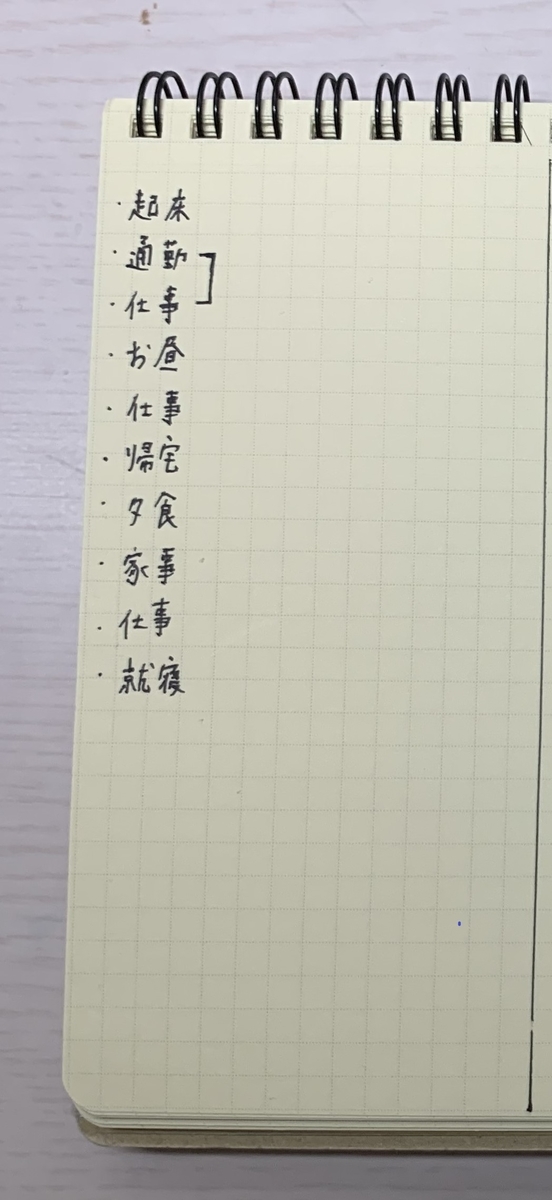 ・起床
・通勤
・仕事
・お昼
・仕事
・帰宅
・夕食
・家事
・仕事
・就寝